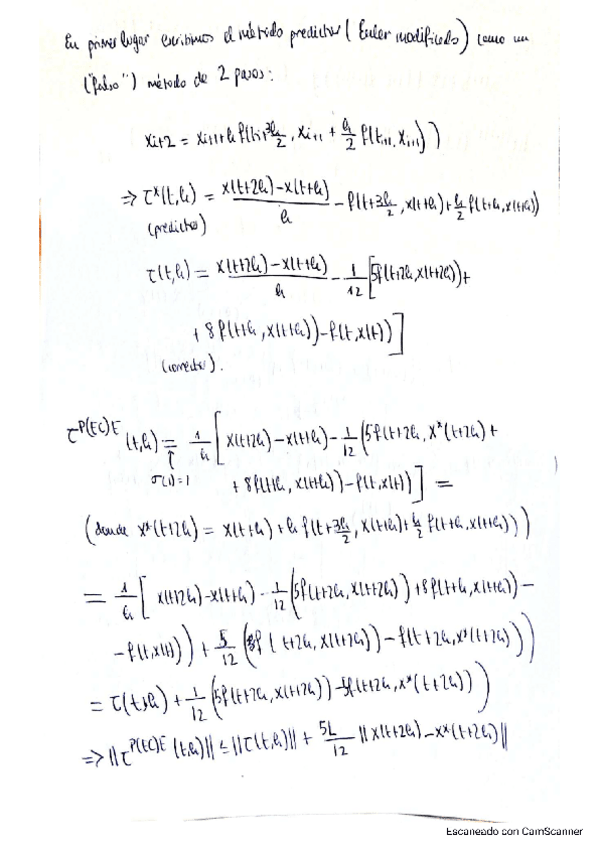 En primer lugar escribimos el método predictor (Euler modificado) como un
("falso") método de 2 pasos:
xi+2 = xi+1+h f(ti+3h/2, xi+1 + h/2 f(ti+1, xi+1))
⇒ τ*(t,h) = x(t+2h)-x(t+h)/h - f(t+3h/2, x(t+h)+h/2 f(t+h,x(t+h)))
(predictor)
τ(t,h) = x(t+2h)-x(t+h)/h - 1/12 [5f(t+2h,x(t+2h))+
+ 8f(t+h,x(t+h))-f(t,x(t))]
(corrector).
τ^P(EC)E (t,h) = 1/h [x(t+2h)-x(t+h)-1/12 (5f(t+2h, x*(t+2h)+
↑
σ(1)=1 + 8f(t+h, x(t+h))-f(t,x(t))] =
(donde x*(t+2h) = x(t+h)+h f(t+3h/2, x(t+h)+h/2 f(t+h,x(t+h))))
= 1/h [x(t+2h)-x(t+h) - 1/12 (5f(t+2h,x(t+2h))+8f(t+h,x(t+h))-
-f(t,x(t))) + 5/12 (f(t+2h,x(t+2h))-f(t+2h,x*(t+2h)))
= τ(t,h) + 1/12 (5f(t+2h,x(t+2h))-5f(t+2h,x*(t+2h)))
⇒ ||τ^P(EC)E (t,h)|| ≤ ||τ(t,h)|| + 5L/12 ||x(t+2h)-x*(t+2h)||
Escaneado con CamScanner